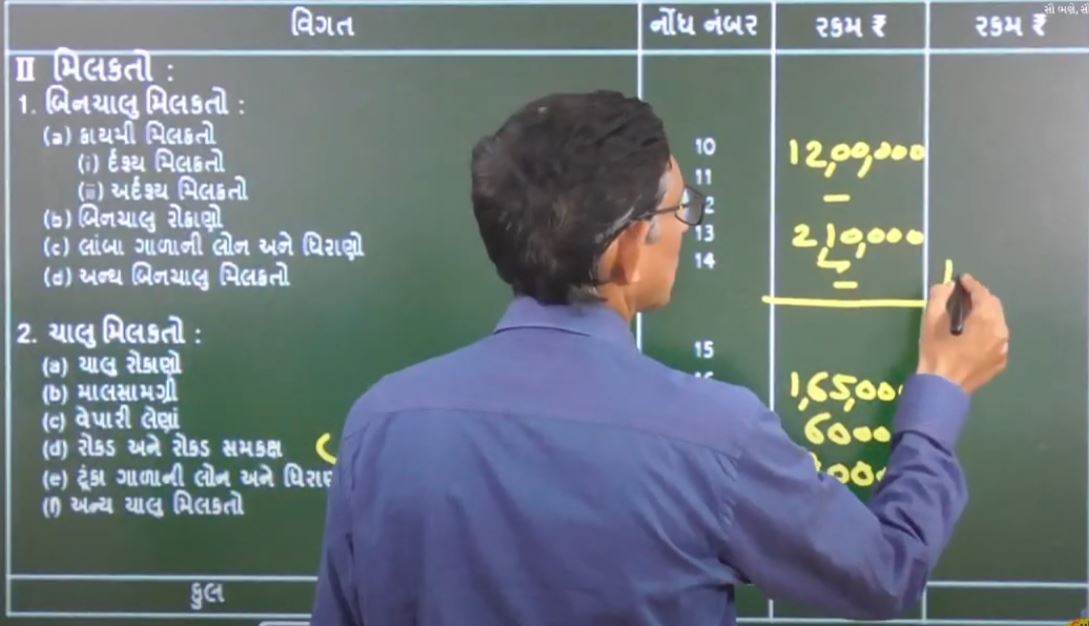 સૌ ભણે, સૌ
વિગત નોંધ નંબર રકમ ₹ રકમ ₹
II મિલકતો :
1. બિનચાલુ મિલકતો :
(a) કાયમી મિલકતો 10 12,00,000
(i) ર્દશ્ય મિલકતો 11
(ii) અર્દશ્ય મિલકતો 2 –
(b) બિનચાલુ રોકાણો 13 2,10,000
(c) લાંબા ગાળાની લોન અને ધિરાણો 14 –
(d) અન્ય બિનચાલુ મિલકતો –
2. ચાલુ મિલકતો :
(a) ચાલુ રોકાણો 15
(b) માલસામગ્રી 1,65,00
(c) વેપારી લેણાં 6000
(d) રોકડ અને રોકડ સમકક્ષ
(e) ટૂંકા ગાળાની લોન અને
(f) અન્ય ચાલુ મિલકતો
કુલ